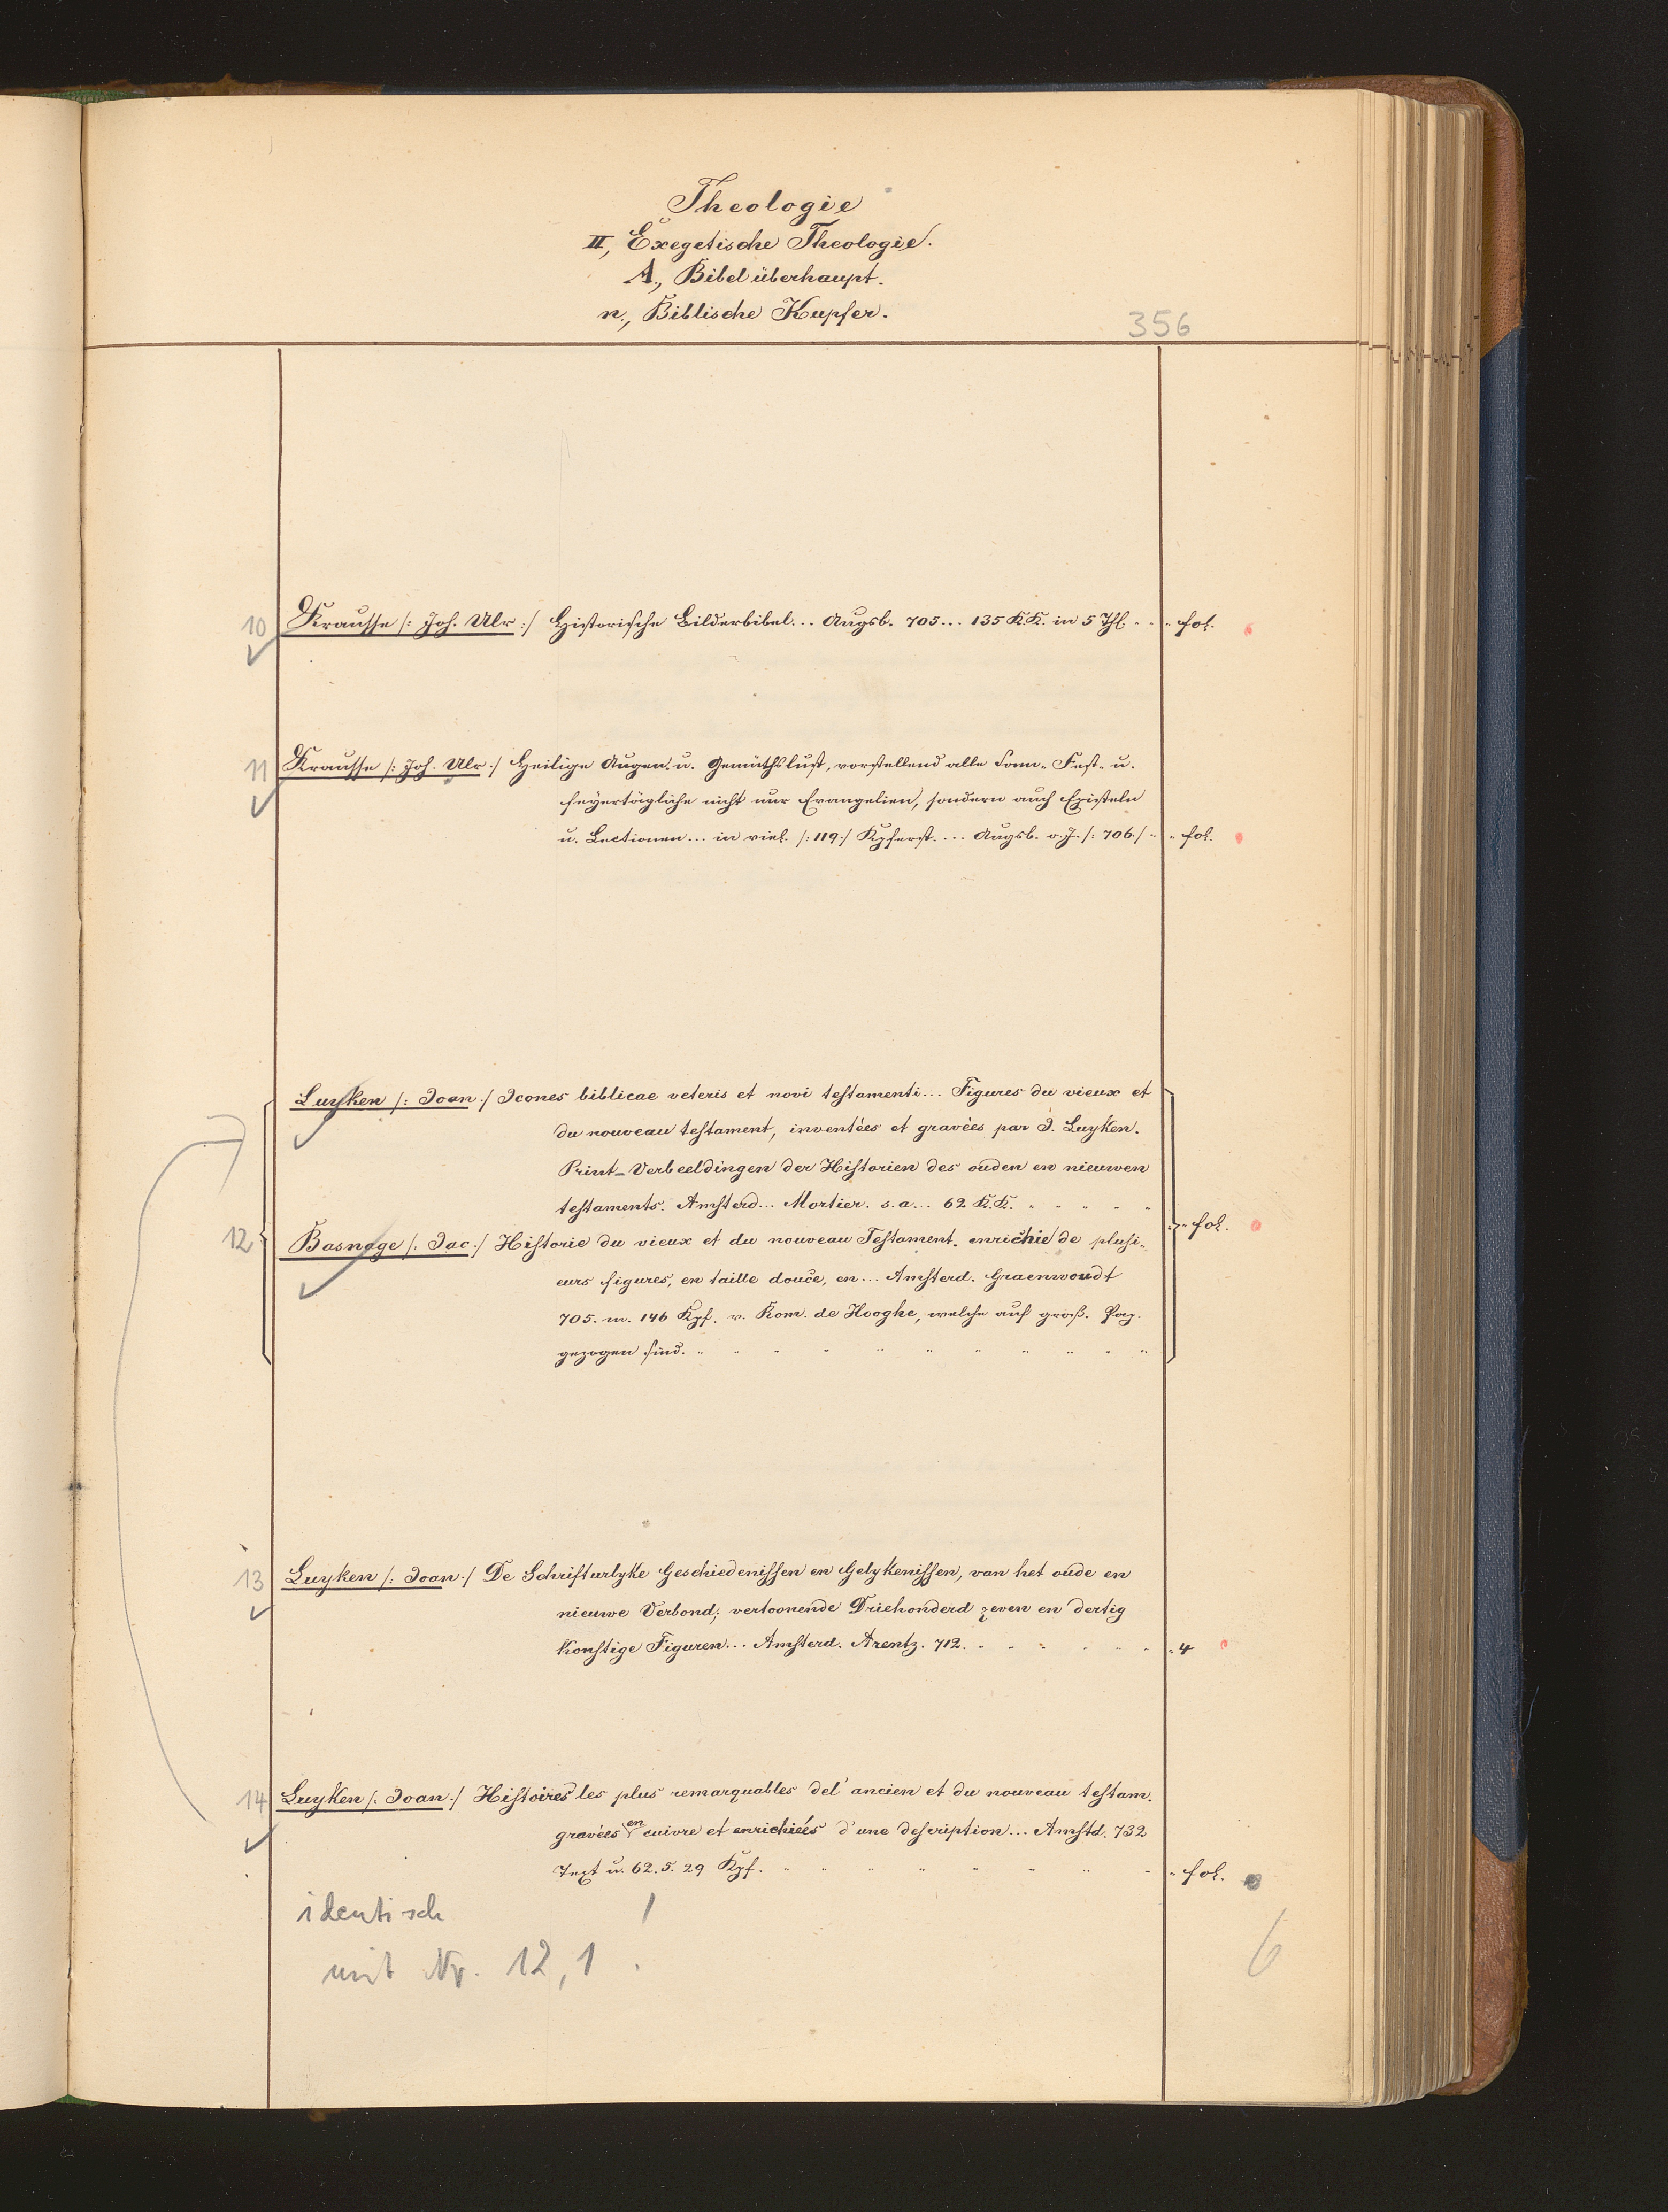 Theologie
II, Exegetische Theologie.
A., Bibel überhaupt.
n., Biblische Kupfer.
356
10 Krausse /: Joh. Ulr :/ Historische Bilderbibel... Augsb. 705... 135 KK. in 5 Thl. " " " fol.
11 Krausse /: Joh. Ulr :/ Heilige Augen- u. Gemüthslust, vorstellend alle Sonn- Fest- u.
feyertägliche nicht nur Evangelien, sondern auch Episteln
u. Lectionen... in viel. /: 119 :/ Kpferst.... Augsb. o. J. /: 706 / " " fol.
Luyken /: Joan :/ Icones biblicae veteris et novi testamenti... Figures du vieux et
du nouveau testament, inventées et gravées par J. Luyken.
Print-Verbeeldingen der Historien des ouden en nieuwen
testaments. Amsterd... Mortier. s. a... 62 K.K. " " " " "
12 Basnage /: Jac :/ Historie du vieux et du nouveau Testament. enrichie de plusi- " fol.
eurs figures, en taille douce, en... Amsterd. Graenwoudt
705. m. 146 Kpf. v. Rom. de Hooghe, welche auf groß. Pap.
gezogen sind. " " " " " " " " " " "
13 Luyken /: Joan :/ De Schrifturlyke Geschiedenissen en Gelykenissen, van het oude en
nieuwe Verbond; vertoonende Driehonderd zeven en dertig
Konstige Figuren... Amsterd. Arentz. 712. " " " " " " " " 4
14 Luyken /: Joan :/ Histoires les plus remarquables del' ancien et du nouveau testam.
gravées en cuivre et enrichiées d'une description... Amstd. 732
Text u. 62. S. 29 Kpf. " " " " " " " " " fol.
identisch !
mit Nr. 12, 1.
6